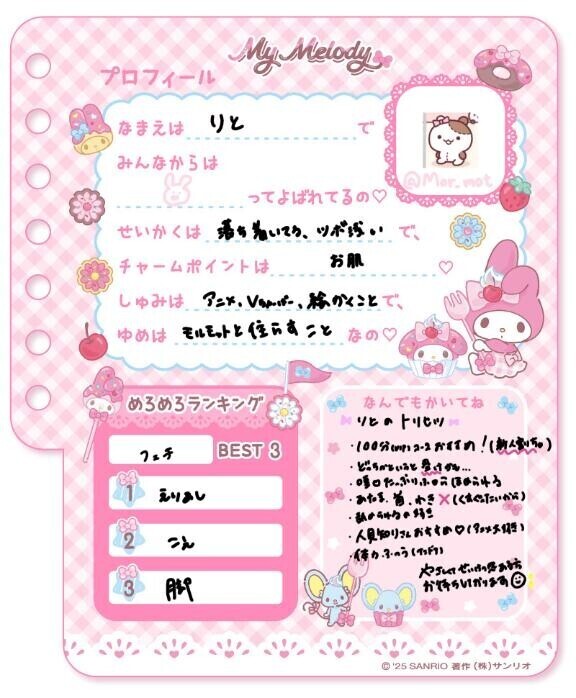 My Melody
プロフィール
なまえは りと で
みんなからは
ってよばれてるの♡
@Mor_mot
せいかくは 落ち着いてる、ツボ浅い で、
チャームポイントは お肌 ♡
しゅみは アニメ、Vtuber、絵かくこと で、
ゆめは モルモットと住らすこと なの♡
めろめろランキング
フェチ BEST 3
1 えりあし
2 こえ
3 脚
なんでもかいてね
りとのトリセツ
・100分 コースおすすめ!(新人割りも)
・どちらかというと
・唾口たっぷり
・あたま、首、わき×(くすぐったいから)
・好き
・人見知りさんおすすめ♡(アニメ大好き)
やさしくて
お待ちしております
© '25 SANRIO 著作 (株)サンリオ